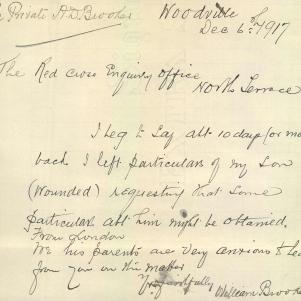 Private A.D. Brooker
Woodville
Dec 6th 1917
The Red Cross Enquiry Office
North Terrace
I beg to Say abt 10 days (or mo
back I left particulars of my Son
(Wounded) requesting that Some
particulars abt him might be obtained.
From London
We his parents are very anxious to hea
from you on this matter
Yrs faithfully
William Brook